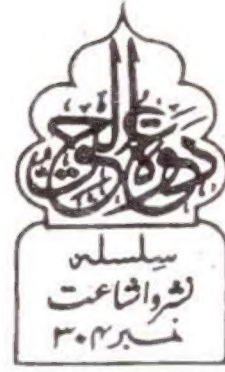 دعوة الحق
سلسلہ
نشر و اشاعت
نمبر ۳۰۴